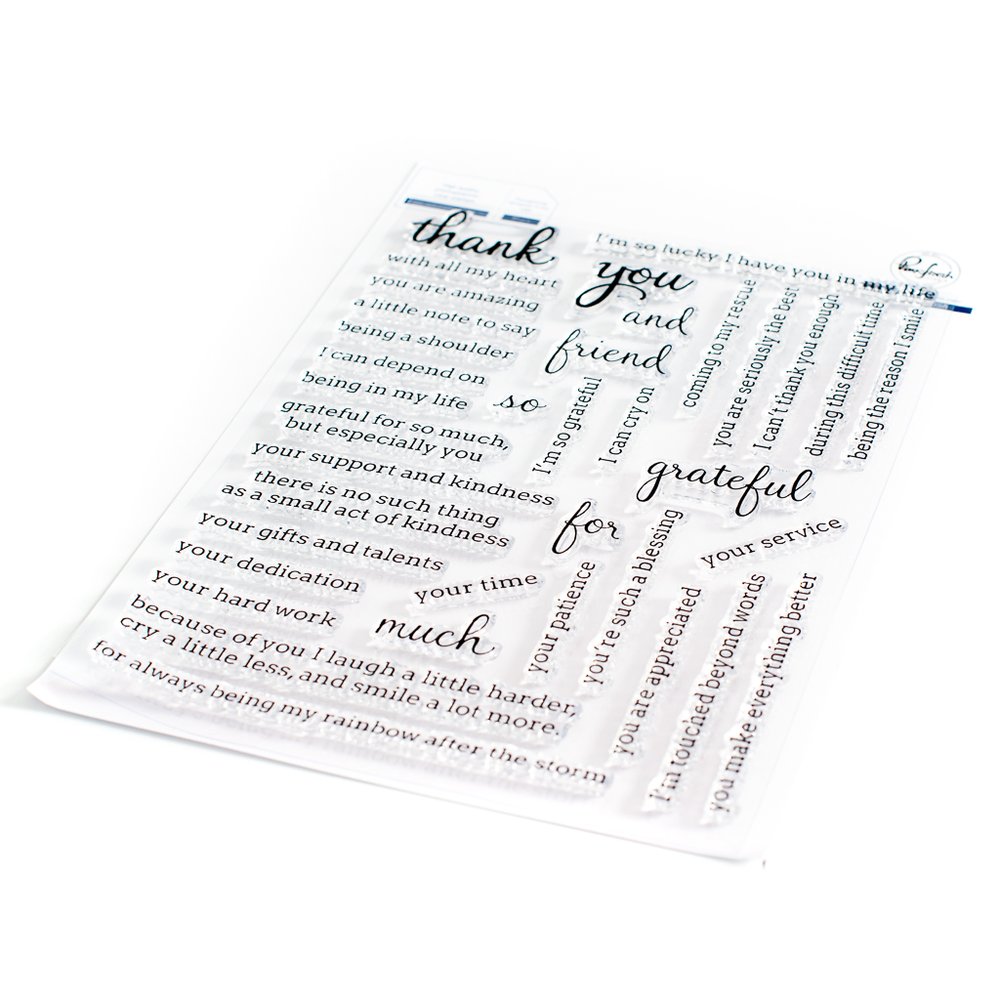 thank
with all my heart
you are amazing
a little note to say
being a shoulder
I can depend on
being in my life
grateful for so much,
but especially you
your support and kindness
there is no such thing
as a small act of kindness
your gifts and talents
your dedication
your hard work
because of you I laugh a little harder,
cry a little less, and smile a lot more.
for always being my rainbow after the storm
I'm so lucky I have you in my life
you
and
friend
so
I'm so grateful
I can cry on
coming to my rescue
you are seriously the best
I can't thank you enough
during this difficult time
being the reason I smile
grateful
for
your service
your time
much
your patience
you're such a blessing
you are appreciated
I'm touched beyond words
you make everything better